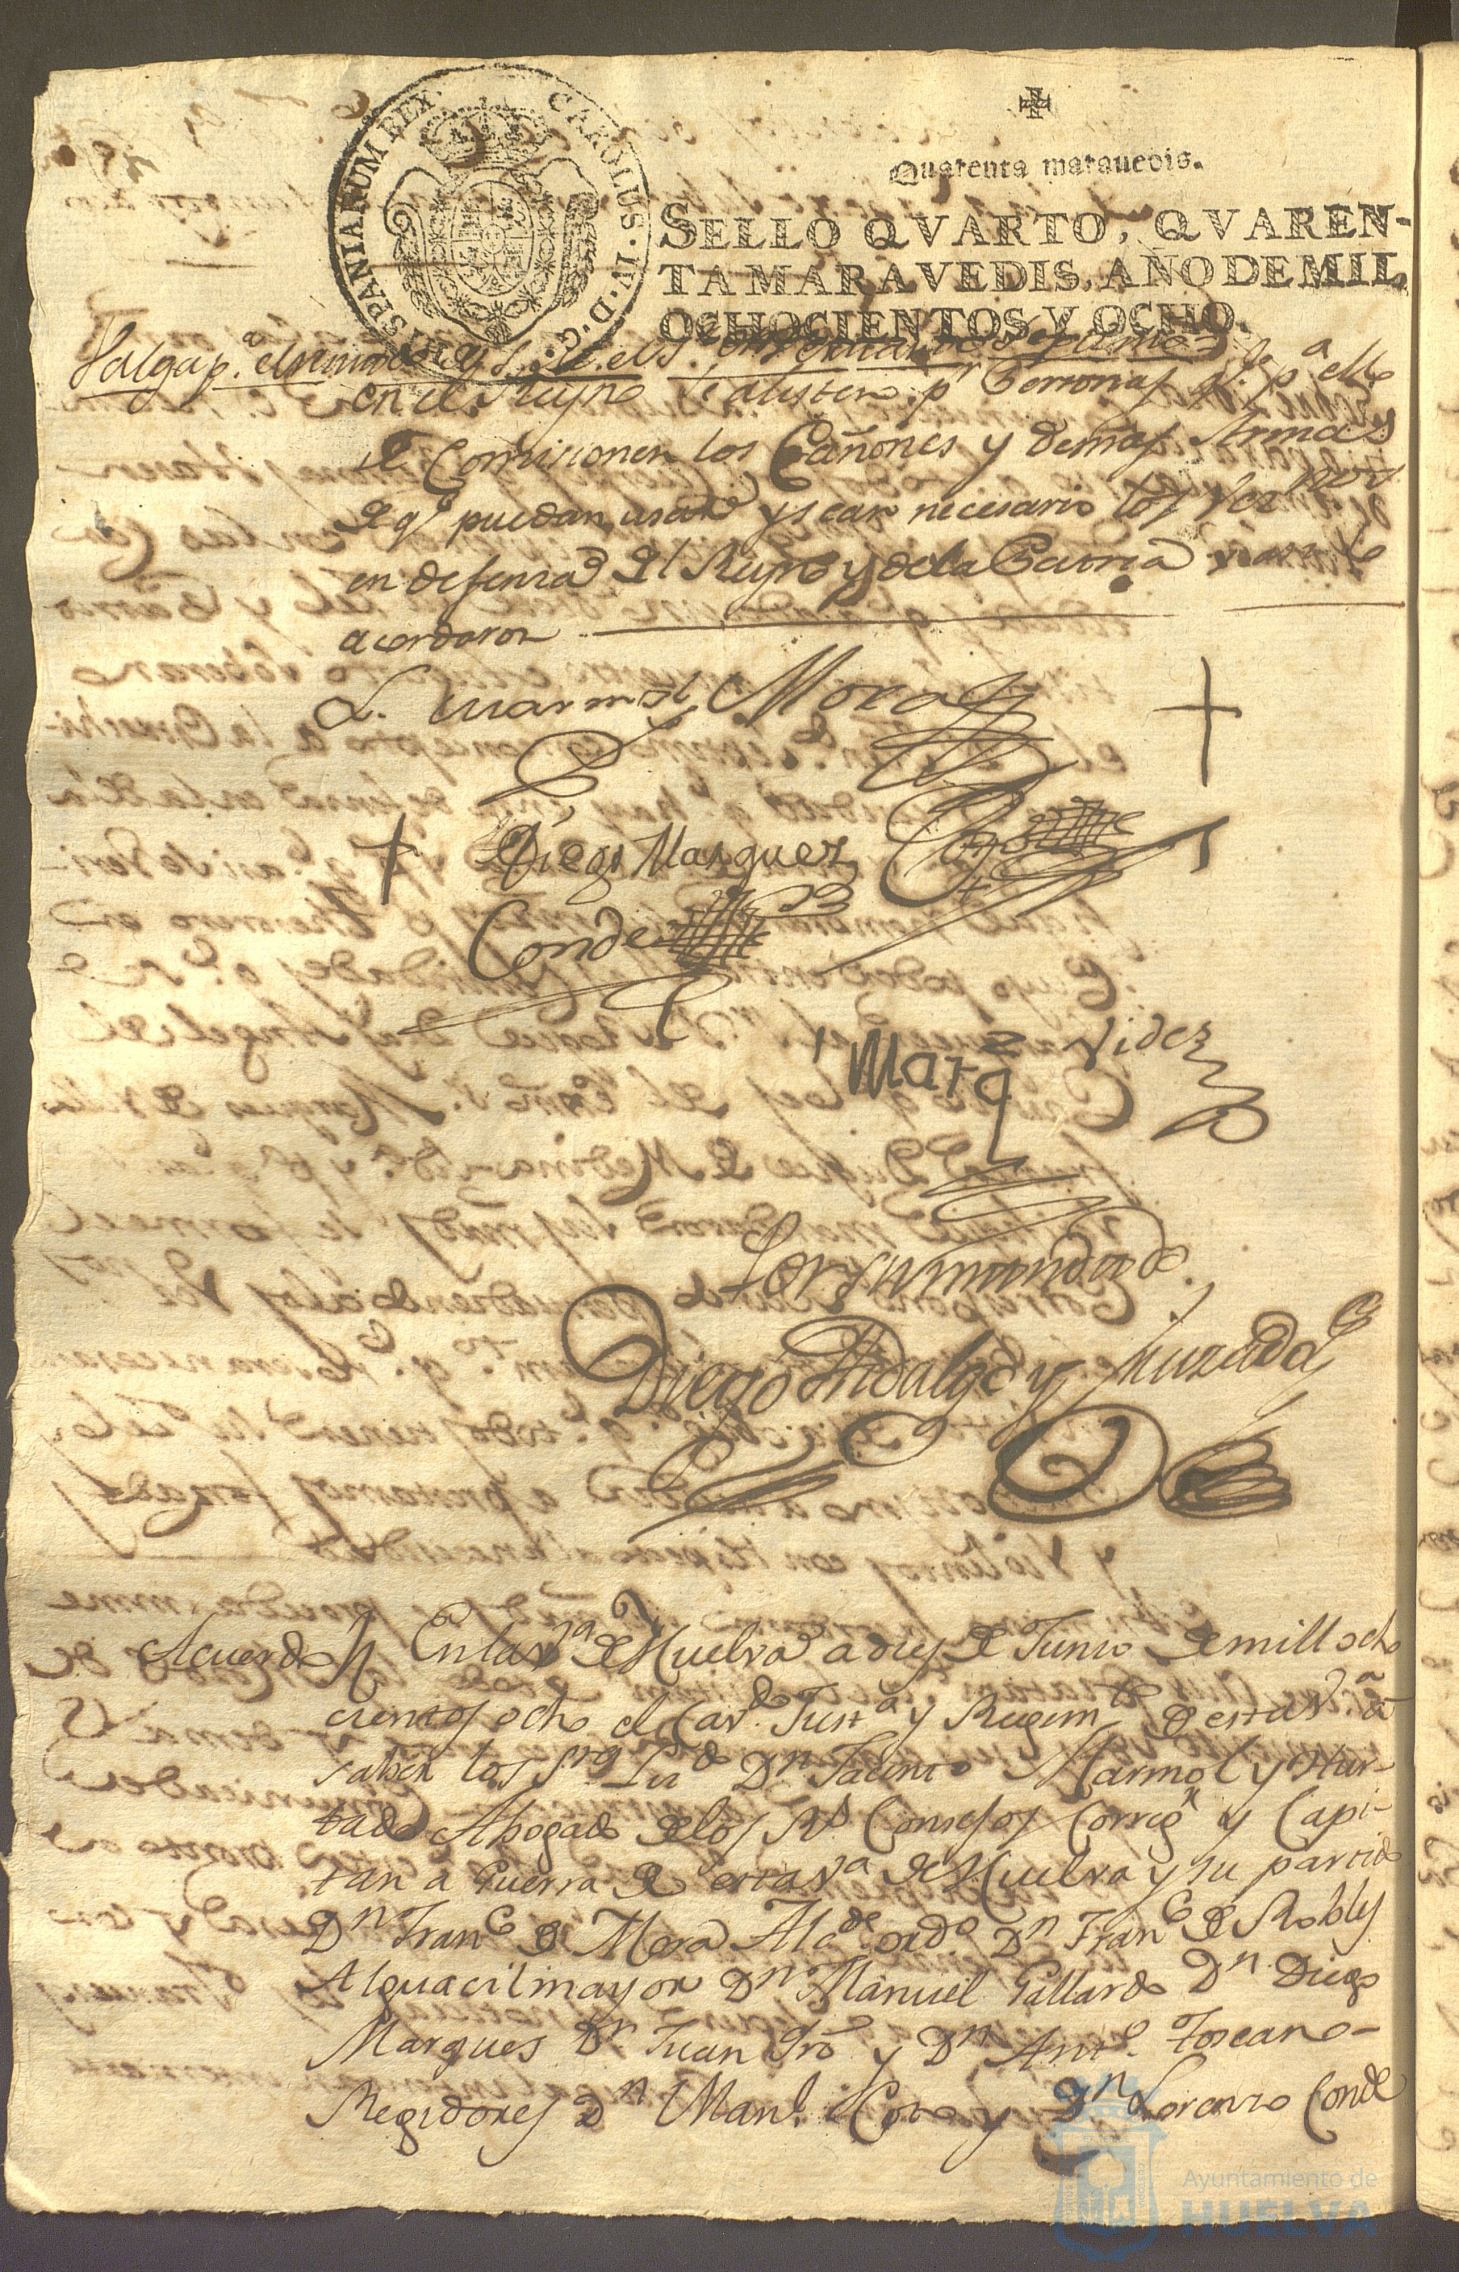 CAROLUS · IV · D · G · HISPANIARUM REX ·
Quarenta marauedis.
SELLO QVARTO, QVAREN-
TA MARAVEDIS, AÑO DE MIL
OCHOCIENTOS Y OCHO.
Valga p.ª el reinado de S. M. el S.ʳ
en el Reyno se alisten p.ʳ Personas q.ᵉ p.ª ello
se Comisionen los Cañones y demas Armas
de q.ᵉ puedan usar y sean necesario los Vez.nos
en defensa del Reyno y de la Patria y asi lo
acordaron
L. Marmol Mora
Diego Marquez
Conde
Marq Videz
Por su mandado.
Diego Hidalgo y Jurado
Acuerdo En la V.ª de Huelva a diez de Junio de mill ocho
cientos ocho el Cav.do Just.ª y Regim.to de esta V.ª a
saber los S.res Lic.do D.n Jacinto Marmol y Hur-
tado Abogado de los R.s Consejos Correg.r y Capi-
tan a Guerra de esta V.ª de Huelva y su partido
D.n Fran.co de Mora Alc.de ord.o D.n Fran.co de Robles
Alguacil mayor D.n Manuel Gallardo D.n Diego
Marques D.n Juan y D.n Ant.o Toscano-
Regidores D.n Man.l Coto y D.n Lorenzo Conde
Ayuntamiento de
HUELVA